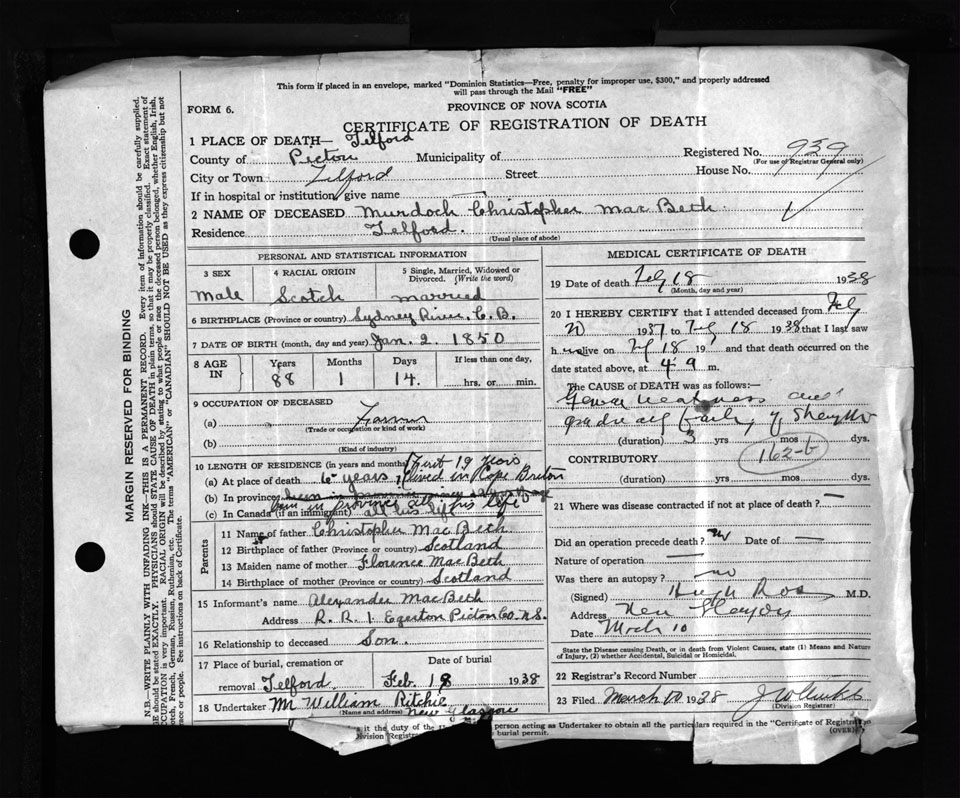 This form if placed in an envelope, marked "Dominion Statistics—Free, penalty for improper use, $300," and properly addressed
will pass through the Mail "FREE"
FORM 6.
PROVINCE OF NOVA SCOTIA
CERTIFICATE OF REGISTRATION OF DEATH
1 PLACE OF DEATH— Telford
County of Pictou Municipality of Registered No. 939
(For use of Registrar General only)
City or Town Telford Street House No.
If in hospital or institution, give name —
2 NAME OF DECEASED Murdoch Christopher MacBeth
Residence Telford.
(Usual place of abode)
PERSONAL AND STATISTICAL INFORMATION
3 SEX 4 RACIAL ORIGIN 5 Single, Married, Widowed or
Divorced. (Write the word)
Male Scotch married
6 BIRTHPLACE (Province or country) Sydney River, C.B.
7 DATE OF BIRTH (month, day and year) Jan. 2. 1850
8 AGE IN Years Months Days If less than one day,
88 1 14. hrs. or min.
9 OCCUPATION OF DECEASED
(a) Farmer
(Trade or occupation or kind of work)
(b)
(Kind of industry)
10 LENGTH OF RESIDENCE (in years and months) First 19 years
(a) At place of death 6 years, lived in Cape Breton
(b) In province
(c) In Canada (if an immigrant) all his life
Parents
11 Name of father Christopher MacBeth
12 Birthplace of father (Province or country) Scotland
13 Maiden name of mother Florence MacBeth
14 Birthplace of mother (Province or country) Scotland
15 Informant's name Alexander MacBeth
Address R. R. 1. Egerton Pictou Co. N.S.
16 Relationship to deceased Son.
17 Place of burial, cremation or Date of burial
removal Telford. Feb. 18 1938
18 Undertaker Mr William Ritchie
(Name and address) New Glasgow
MEDICAL CERTIFICATE OF DEATH
19 Date of death Feb 18 1938
(Month, day and year)
20 I HEREBY CERTIFY that I attended deceased from
1937 to Feb 18 1938 that I last saw
h alive on Feb 18 19 and that death occurred on the
date stated above, at 4.9 m.
The CAUSE OF DEATH was as follows:—
General weakness and
gradually failing of strength
(duration) 3 yrs mos dys.
CONTRIBUTORY 162-b
(duration) yrs mos. dys.
21 Where was disease contracted if not at place of death? —
Did an operation precede death? No Date of —
Nature of operation —
Was there an autopsy? no
(Signed) Hugh Ross M.D.
Address New Glasgow
Date March 10
State the Disease causing Death, or in death from Violent Causes, state (1) Means and Nature
of Injury, (2) whether Accidental, Suicidal or Homicidal.
22 Registrar's Record Number
23 Filed March 10 1938
(Division Registrar)
s it the duty of the person acting as Undertaker to obtain all the particulars required in the "Certificate of Registrat
Division Regist burial permit. (OVER)
MARGIN RESERVED FOR BINDING
N.B.—WRITE PLAINLY WITH UNFADING INK—THIS IS A PERMANENT RECORD. Every item of information should be carefully supplied.
be should be stated EXACTLY. PHYSICIANS should STATE CAUSE OF DEATH in plain terms, so that it may be properly classified. Exact statement of
OCCUPATION is very important. RACIAL ORIGIN will be described by stating to what people or race the deceased person belonged, whether English, Irish,
Scotch, French, German, Russian, Ruthenian, etc. The terms "AMERICAN" or "CANADIAN" SHOULD NOT BE USED as they express citizenship but not
ce or people. See instructions on back of Certificate.